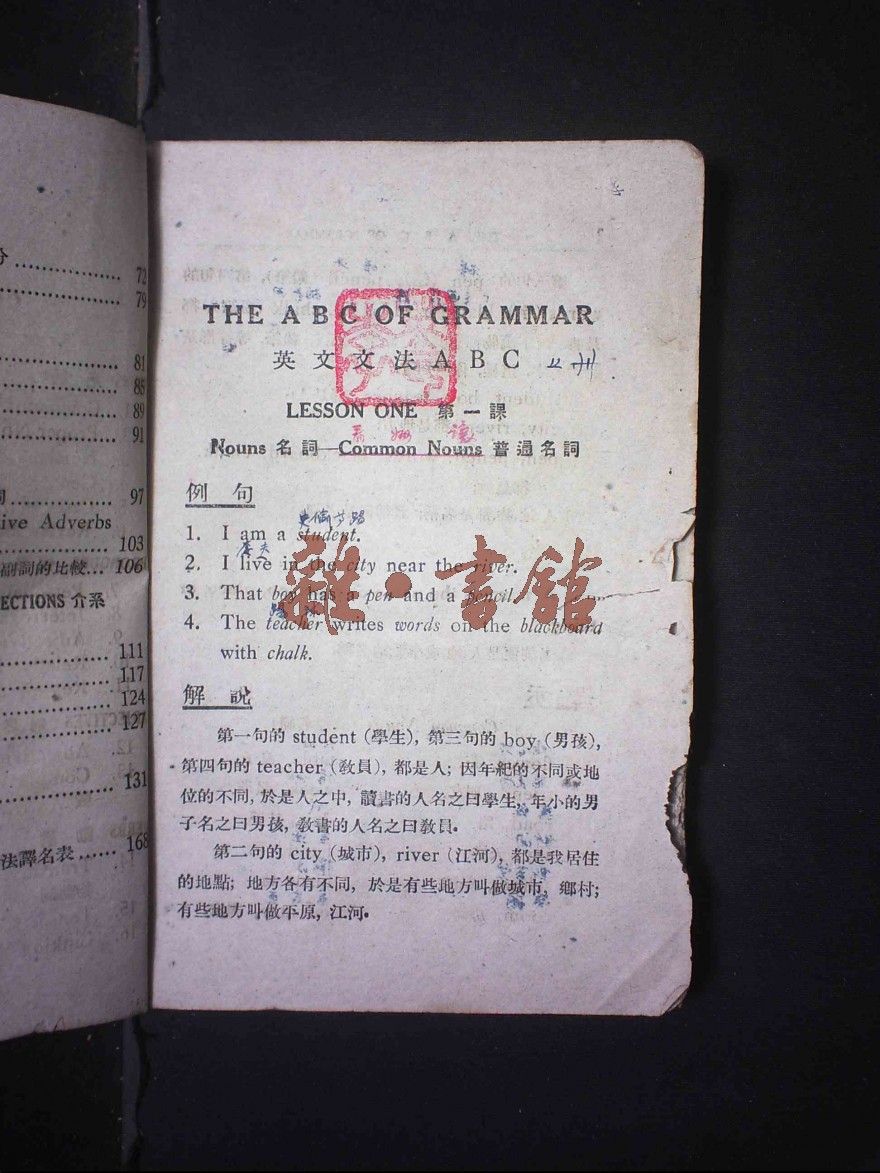 72
79
81
85
89
91
97
ive Adverbs
103
副詞的比較... 106
ECTIONS 介系
111
117
124
127
131
法譯名表...... 168
THE A B C OF GRAMMAR
英文文法 A B C
LESSON ONE 第一課
Nouns 名詞—Common Nouns 普通名詞
例句
1. I am a student.
2. I live in the city near the river.
3. That boy has a pen and a pencil
4. The teacher writes words on the blackboard
with chalk.
雜·書館
解說
第一句的 student (學生), 第三句的 boy (男孩),
第四句的 teacher (教員), 都是人; 因年紀的不同或地
位的不同, 於是人之中, 讀書的人名之曰學生, 年小的男
子名之曰男孩, 教書的人名之曰教員.
第二句的 city (城市), river (江河), 都是我居住
的地點; 地方各有不同, 於是有些地方叫做城市, 鄉村;
有些地方叫做平原, 江河.